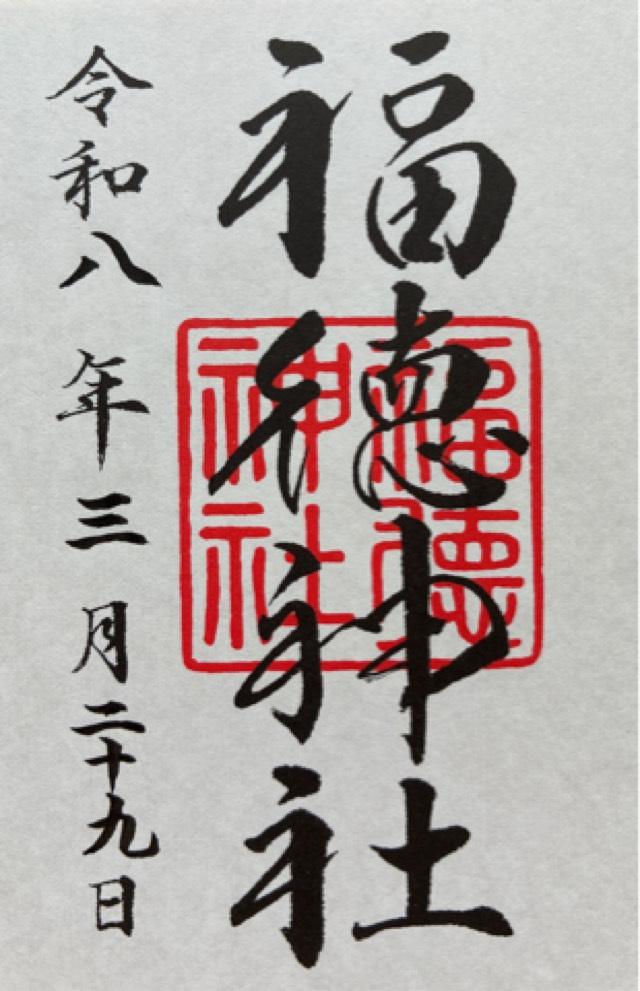 福德神社
福德神社
令和八年三月二十九日